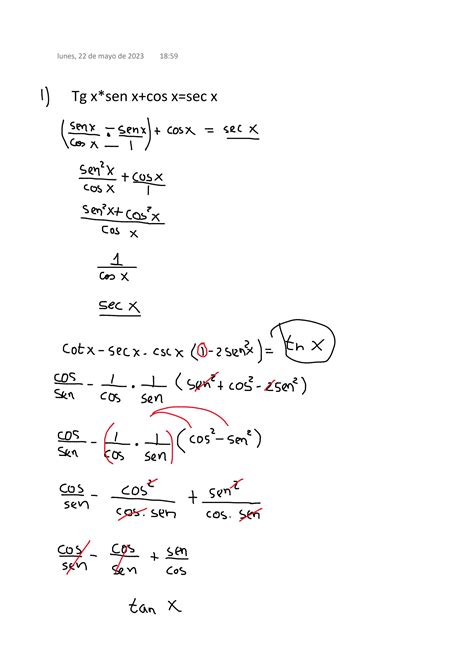 lunes, 22 de mayo de 2023 18:59
1) Tg x*sen x+cos x=sec x
(sen x/cos x · sen x/1) + cos x = sec x
sen²x/cos x + cos x/1
sen²x+cos²x/cos x
1/cos x
sec x
cot x - sec x · csc x (1-2sen²x) = tn x
cos/sen - 1/cos · 1/sen (sen² + cos² - 2sen²)
cos/sen - (1/cos · 1/sen)(cos² - sen²)
cos/sen - cos²/cos. sen + sen²/cos. sen
cos/sen - cos/sen + sen/cos
tan x